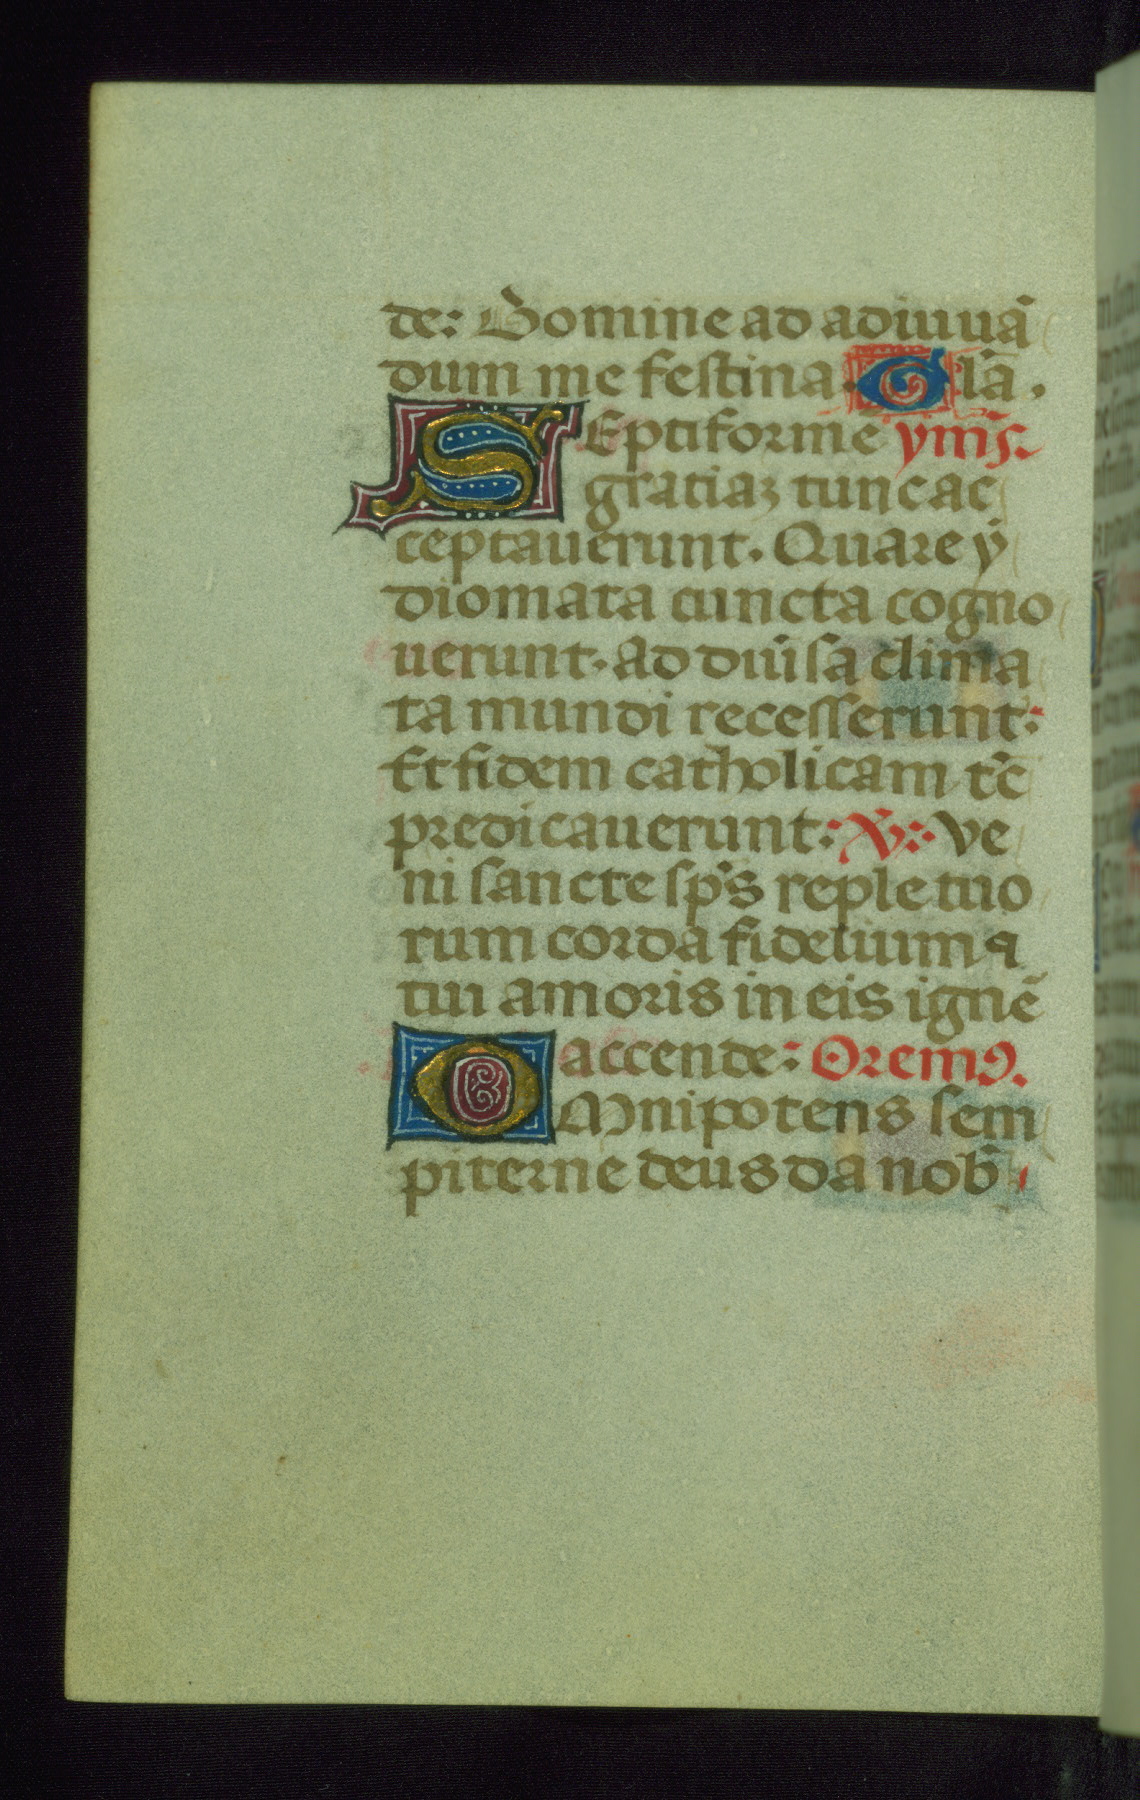 de: Domine ad adiuuã
dum me festina. Glã.
SEptiformẽ ymꝰs.
gratiaꝫ tunc ac
ceptauerunt. Quare ẏ
diomata cuncta cogno
uerunt. ad diuĩsa clima
ta mundi recesserunt:
Et fidem catholicam tc̃
predicauerunt: ℣: Ve
ni sancte sp̃s reple tuo
rum corda fidelium ⁊
tui amoris in eis ignẽ
accende: Oremꝰ.
OMnipotens sem
piterne deus da nob̃